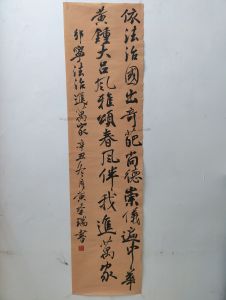 依法治國出奇葩尚德崇儀遍中華
黃鍾大呂風雅頌春風伴我進萬家
邹寧法治進萬家 辛丑冬月黄瑞書